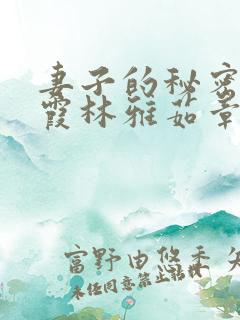 妻子的秘密
霞林雅茹章
富野由悠季 矢
未经同意禁止转载